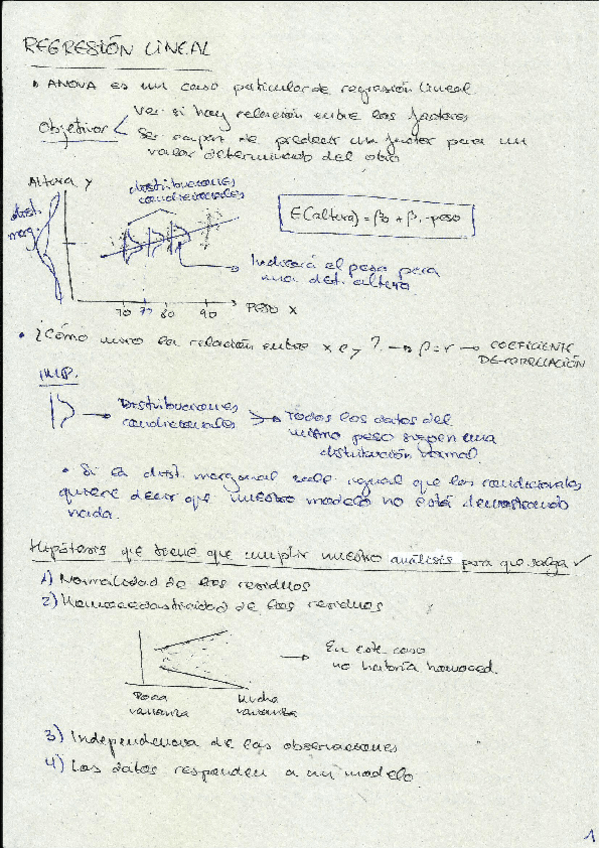 REGRESIÓN LINEAL
• ANOVA es un caso particular de regresión lineal
Objetivos < Ver si hay relación entre los factores
Ser capaz de predecir un factor para un
valor determinado del otro
Altura y
distribuciones
condicionales
dist.
marg.
E(altura) = β0 + β1 · peso
Indicará el peso para
una det. altura
70 77 80 90 PESO x
• ¿Cómo miro la relación entre x e y? → β = r → COEFICIENTE
DE CORRELACIÓN
IMP.
Distribuciones
condicionales
Todos los datos del
mismo peso siguen una
distribución normal
• Si la dist. marginal sale igual que las condicionales
quiere decir que nuestro modelo no está demostrando
nada.
Hipótesis que tiene que cumplir nuestro análisis para que salga ✓
1) Normalidad de los residuos
2) Homocedasticidad de los residuos
En este caso
no habría homoced.
Poca
varianza
Mucha
varianza
3) Independencia de las observaciones
4) Los datos responden a un modelo.
1